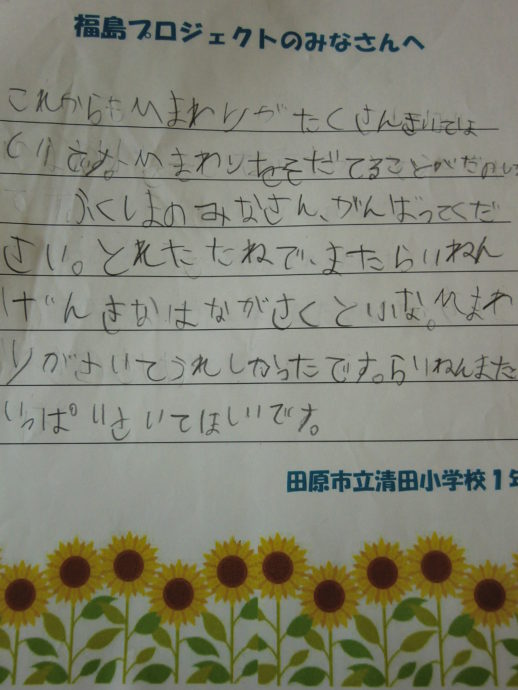 福島プロジェクトのみなさんへ
これからもひまわりがたくさんさいてほ
しいです。ひまわりをそだてることがたのし
ふくしまのみなさん、がんばってくだ
さい。とれたたねで、またらいねん
げんきなはながさくといいな。ひまわ
りがさいてうれしかったです。らいねんまた
いっぱいさいてほしいです。
田原市立清田小学校1年